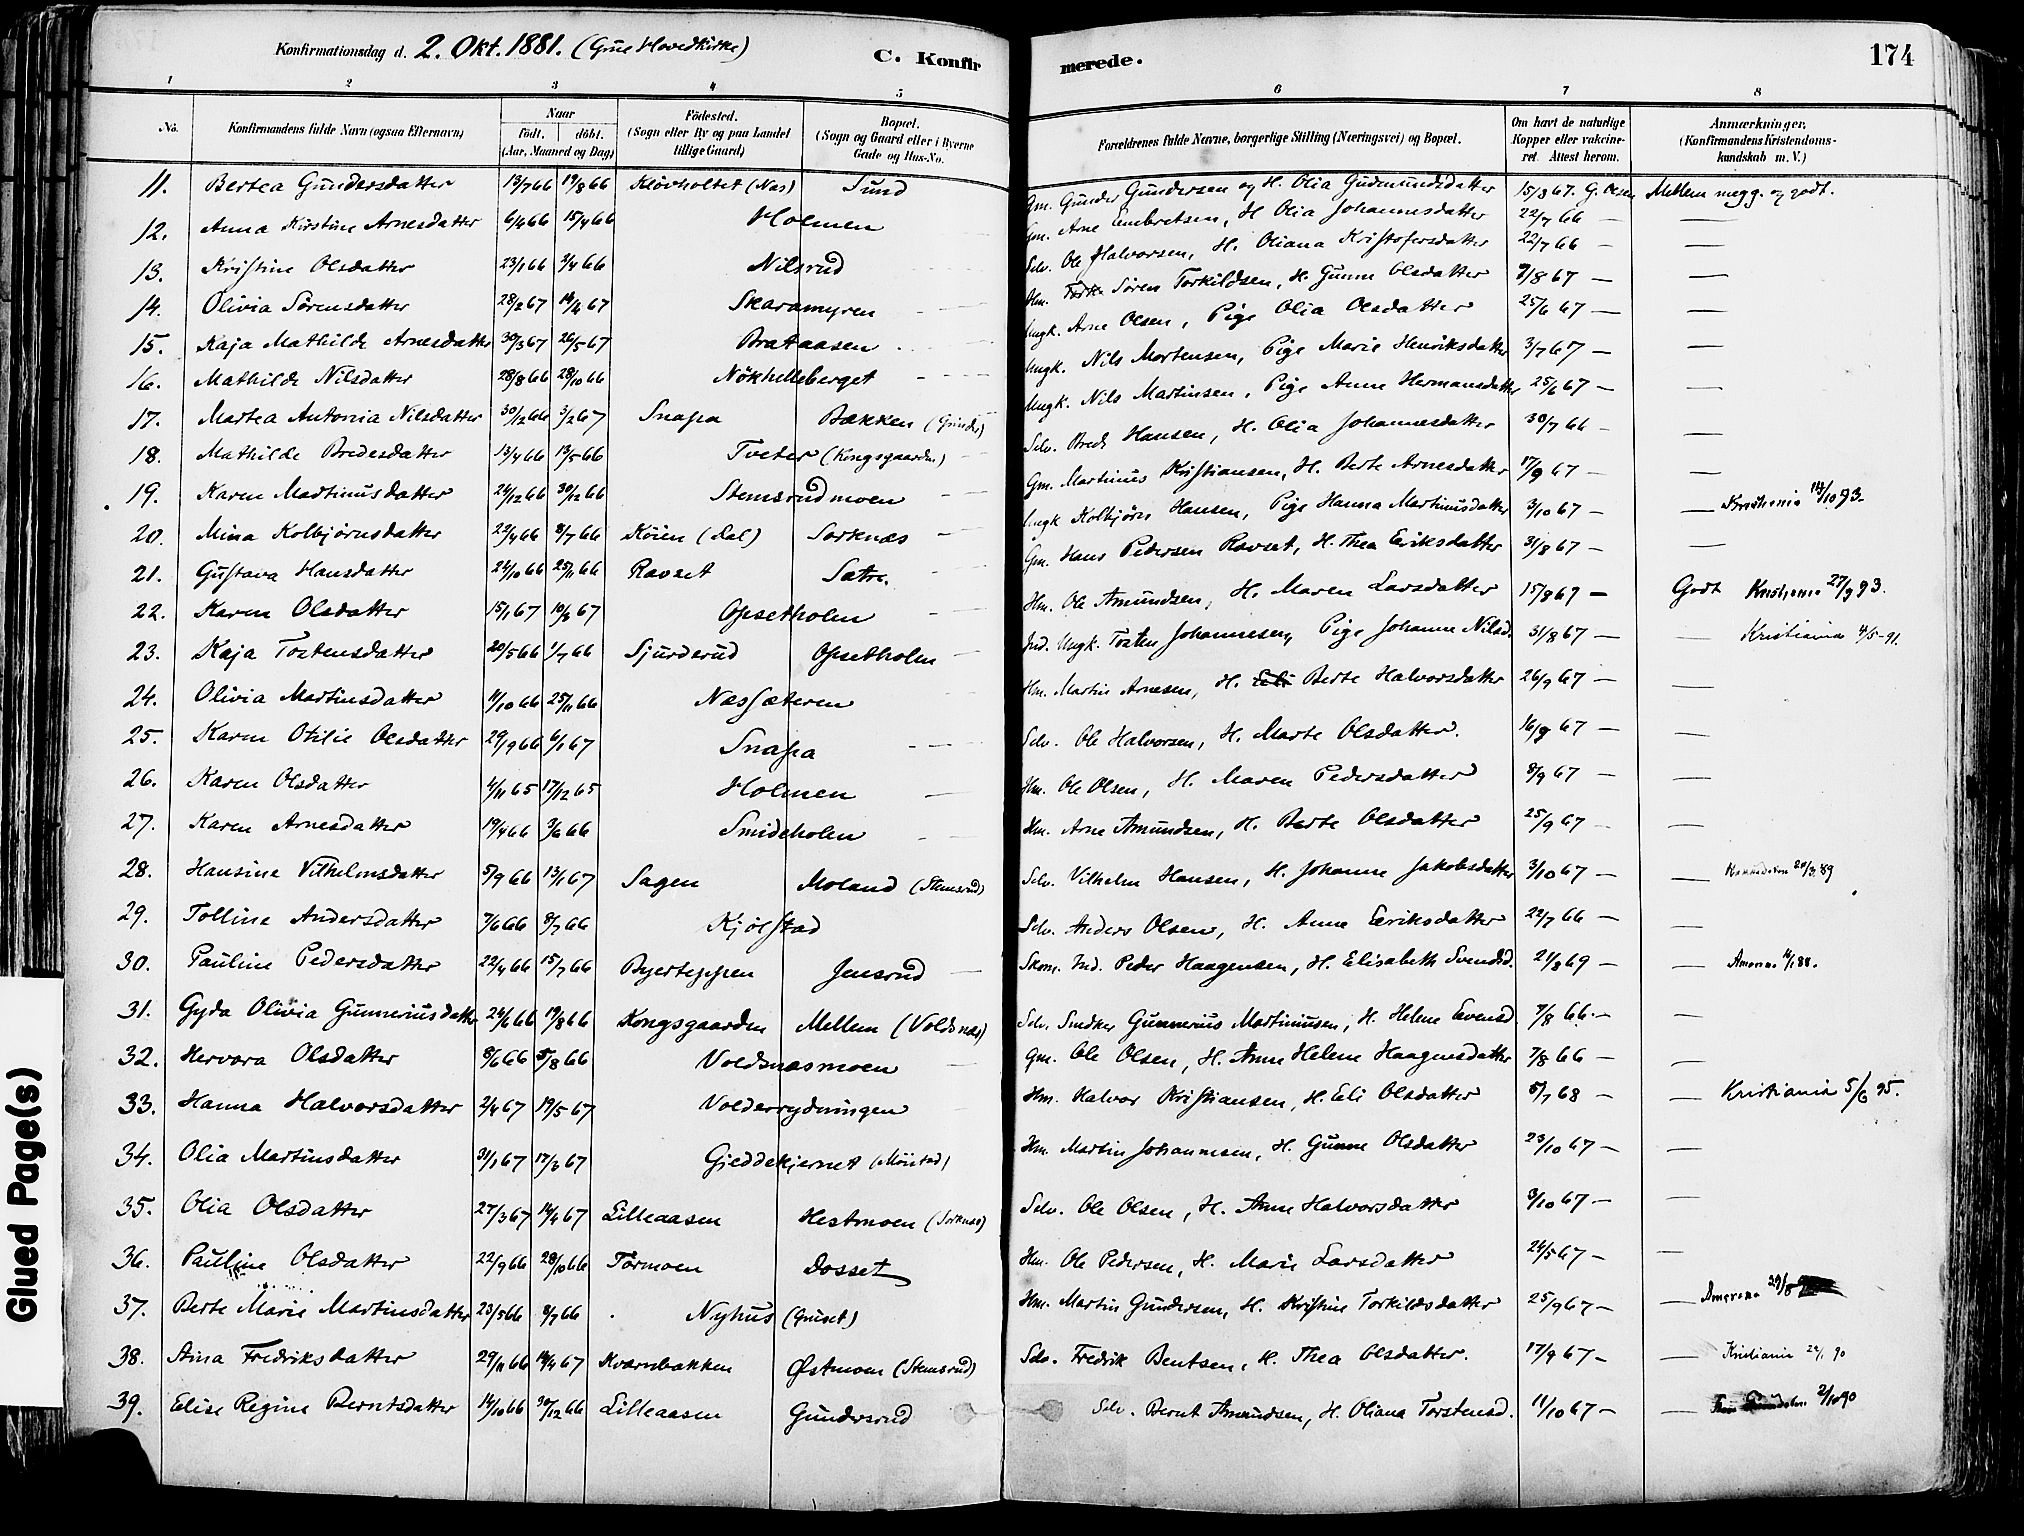 Konfirmationsdag d. 2. Okt. 1881. (Grue Hovedkirke) C. Konfir merede. 174
1 2 3 4 5 6 7 8
No. Konfirmandens fulde Navn (ogsaa Efternavn) Naar födt. döbt. (Aar, Maaned og Dag) Födested. (Sogn eller By og paa Landet tillige Gaard) Bopæl. (Sogn og Gaard eller i Byerne Gade og Hus-No. Forældrenes fulde Navne, borgerlige Stilling (Næringsvei) og Bopæl. Om havt de naturlige Kopper eller vakcineret. Attest herom. Anmærkninger. (Konfirmandens Kristendomskundskab m. V.)
11. Bertea Gundersdatter 13/7 66 19/8 66 Kløvholtet (Næs) Sund Gm. Gunder Gundersen og H. Olia Gudmundsdatter 15/8 67. G. Olsen Mellem megg. og godt.
12. Anna Kirstine Arnesdatter 6/4 66 15/4 66 Holmen Gm. Arne Embretsen, H. Olia Johannesdatter 22/7 66 — —
13. Kristine Olsdatter 23/1 66 2/4 66 Nilsrud Selv. Ole Halvorsen, H. Oliana Kristofersdatter 22/7 66 — —
14. Olivia Sørensdatter 28/2 67 14/4 67 Skaramyren Hm. Søren Torkildsen, H. Gunne Olsdatter 9/8 67 — —
15. Kaja Mathilde Arnesdatter 30/3 67 26/5 67 Brataasen Ungk. Arne Olsen, Pige Olia Olsdatter 25/6 67 — —
16. Mathilde Nilsdatter 28/8 66 28/10 66 Nökhelleberget Ungk. Nils Mortensen, Pige Marie Henriksdatter 3/7 67 — —
17. Martea Antonia Nilsdatter 30/12 66 3/2 67 Snapa Bækken (Grinder) Ungk. Nils Martinsen, Pige Anne Hermansdatter 25/6 67 — —
18. Mathilde Bredesdatter 13/4 66 13/5 66 Tveter (Kongsgaarden) Selv. Brede Hansen, H. Olia Johannesdatter 30/7 66 — —
19. Karen Martinusdatter 24/12 66 30/12 66 Stemsrudmoen Gm. Martinus Kristiansen, H. Berte Arnesdatter 17/9 67 — —
20. Mina Kolbjørnsdatter 22/4 66 8/7 66 Köien (Dal) Sorknæs Ungk Kolbjörn Hansen, Pige Hanna Martinusdatter 3/10 67 — — Kristiania 14/10 93.
21. Gustava Hansdatter 24/10 66 25/11 66 Ravset Sætre Gm. Hans Pedersen Ravset, H. Thea Eriksdatter 31/8 67 — —
22. Karen Olsdatter 15/1 67 10/3 67 Opsetholen Hm. Ole Amundsen, H. Maren Larsdatter 15/8 67 — Godt Kristiania 27/9 93.
23. Kaja Tostensdatter 20/5 66 1/7 66 Sjurderud Opsetholen Ind. Ungk. Tosten Johannesen, Pige Johanne Nilsd. 31/8 67 — — Kristiania 4/5-91.
24. Olivia Martinsdatter 11/10 66 25/11 66 Næssæteren Hm. Martin Arnesen, H. Eli Berte Halvorsdatter 26/9 67 — —
25. Karen Otilie Olsdatter 29/9 66 6/1 67 Snapa Selv. Ole Halvorsen, H. Marte Olsdatter. 16/9 67 — —
26. Karen Olsdatter 4/11 65 17/12 65 Holmen Hm. Ole Olsen, H. Maren Pedersdatter 8/9 67 — —
27. Karen Arnesdatter 19/4 66 3/6 66 Smideholen Hm. Arne Amundsen, H. Berte Olsdatter 25/9 67 — —
28. Hansine Vilhelmsdatter 5/9 66 13/1 67 Sagen Moland (Stemsrud) Selv. Vilhelm Hansen, H. Johanne Jakobsdatter 3/10 67 — —
29. Tolline Andersdatter 7/6 66 8/7 66 Kjølstad Selv. Anders Olsen, H. Anne Eeriksdatter 22/7 66 — —
30. Pauline Pedersdatter 22/4 66 15/7 66 Byerteppen Jensrud Skom. Ind. Peder Haagensen, H. Elisabeth Svendsd. 21/8 69 — —
31. Gyda Olivia Gunneriusdatter 24/6 66 19/8 66 Kongsgaarden Mellem (Voldnæs) Selv. Snedker Gunnerius Martiniusen, H. Helene Evensd. 7/8 66. — —
32. Hervora Olsdatter 8/6 66 5/8 66 Voldsnæsmoen Gm. Ole Olsen, H. Anne Helene Haagensdatter 7/8 66 — —
33. Hanna Halvorsdatter 2/4 67 19/5 67 Volderrydningen Hm. Halvor Kristiansen, H. Eli Olsdatter 5/7 68 — — Kristiania 5/6 95.
34. Olia Martinsdatter 31/1 67 17/3 67 Gieddekjernet (Möistad) Hm. Martin Johannesen, H. Gunne Olsdatter 23/10 67 — —
35. Olia Olsdatter 27/3 67 14/4 67 Lilleaasen Hestmoen (Sorknæs) Selv. Ole Olsen, H. Anne Halvorsdatter 3/10 67 — —
36. Pauline Olsdatter 22/9 66 28/10 66 Tormoen Dosset Hm. Ole Pedersen, H. Marie Larsdatter 24/5 67 — —
37. Berte Marie Martinsdatter 23/5 66 8/7 66 Nyhus (Gruset) Hm. Martin Gundersen, H. Kristine Torkildsdatter 25/9 67 — — Amerika
38. Stina Fredriksdatter 29/11 66 14/4 67 Kværnbakken Østmoen (Stemsrud) Selv. Fredrik Bentsen, H. Thea Olsdatter. 17/9 67 — — Kristiania 22/1 90
39. Elise Regine Berntsdatter 14/10 66 30/12 66 Lilleaasen Gundersrud Selv. Bernt Amundsen, H. Oliana Torstensd. 11/10 67 — — 2/10 90
Glued Page(s)